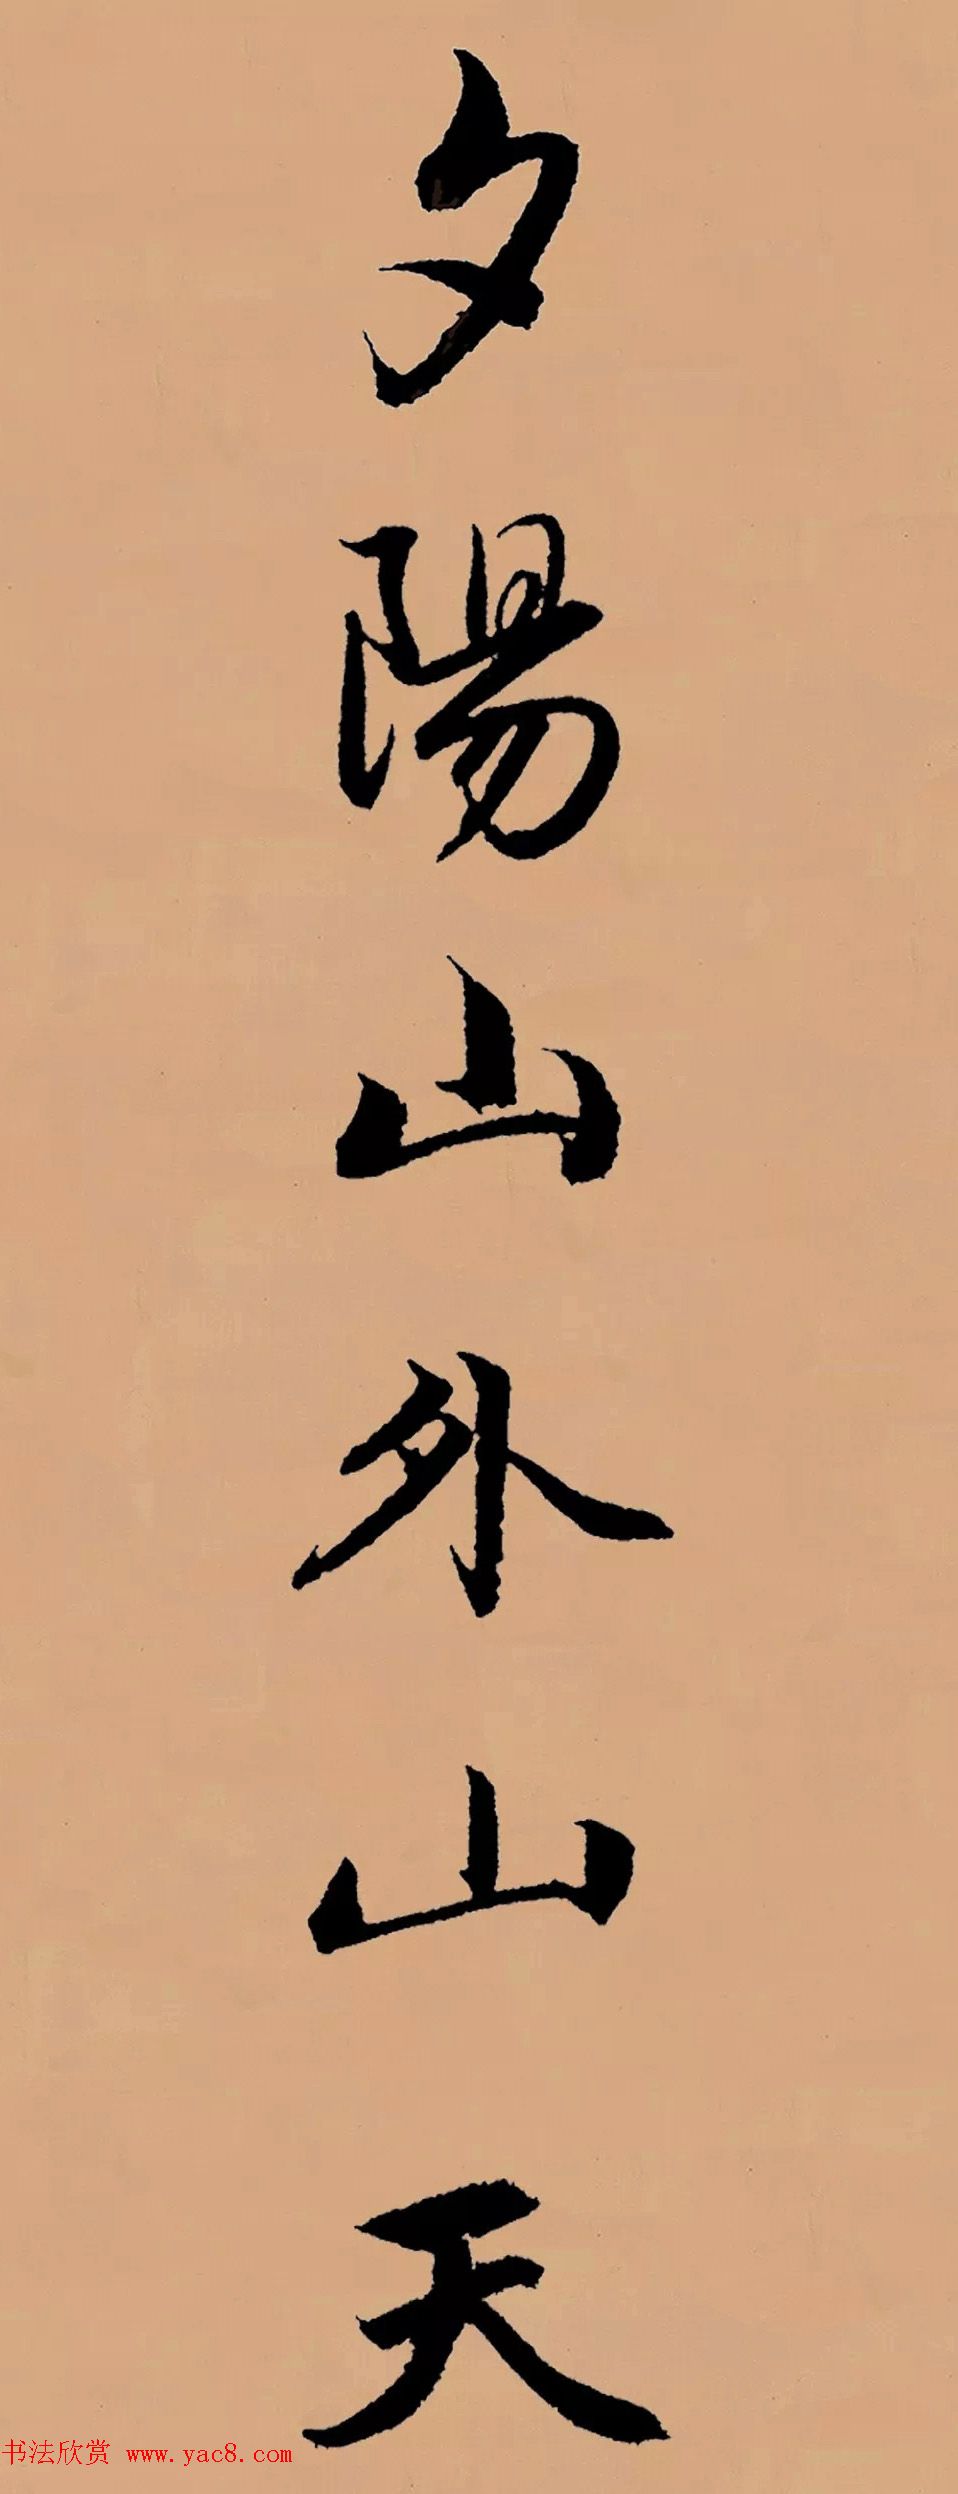 夕陽山外山天
书法欣赏 www.yac8.com